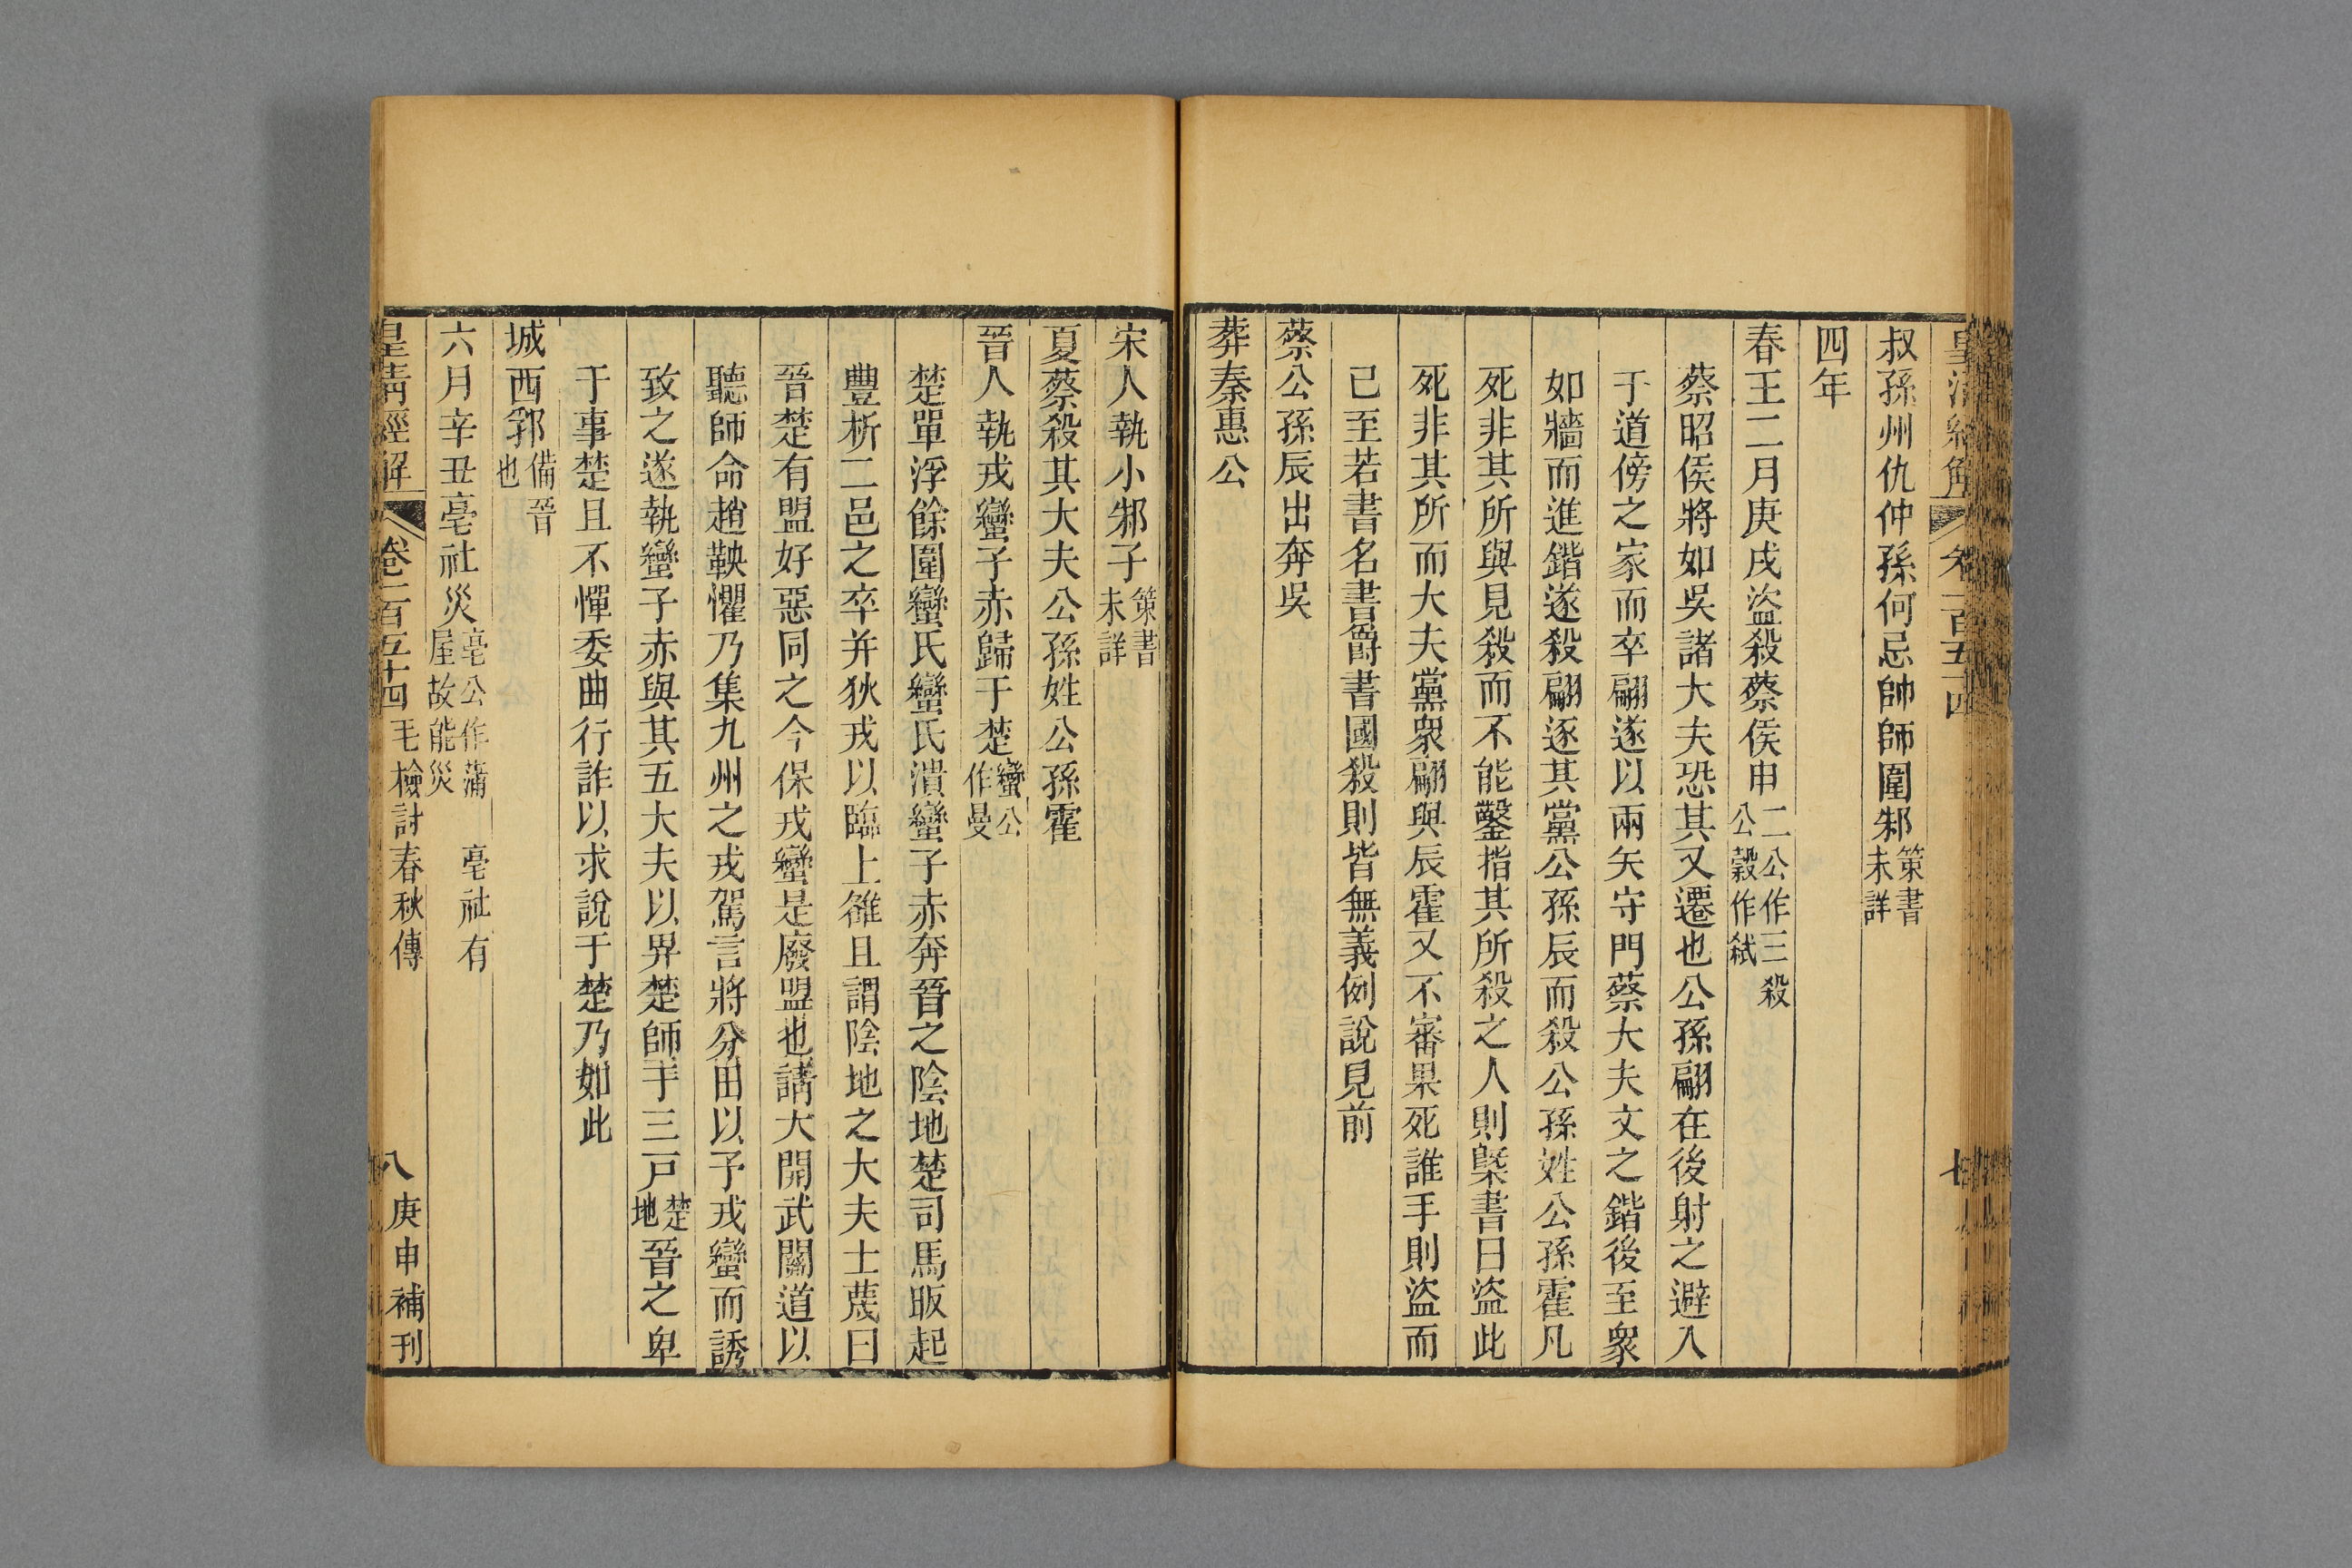 皇清經解 卷一百五十四 七
叔孫州仇仲孫何忌帥師圍邾策書未詳
四年
春王二月庚戌盜殺蔡侯申二公作三殺公穀作弑
蔡昭侯將如吳諸大夫恐其又遷也公孫翩在後射之避入
于道傍之家而卒翩遂以兩矢守門蔡大夫文之鍇後至衆
如牆而進鍇遂殺翩逐其黨公孫辰而殺公孫姓公孫霍凡
死非其所與見殺而不能鑿指其所殺之人則槩書曰盜此
死非其所而大夫黨衆翩與辰霍又不審果死誰手則盜而
已至若書名書爵書國殺則皆無義例說見前
蔡公孫辰出奔吳
葬秦惠公
宋人執小邾子策書未詳
夏蔡殺其大夫公孫姓公孫霍
晉人執戎蠻子赤歸于楚蠻公作曼
楚單浮餘圍蠻氏蠻氏潰蠻子赤奔晉之陰地楚司馬眅起
豐析二邑之卒并狄戎以臨上雒且謂陰地之大夫士蔑曰
晉楚有盟好惡同之今保戎蠻是廢盟也請大開武關道以
聽師命趙鞅懼乃集九州之戎駕言將分田以予戎蠻而誘
致之遂執蠻子赤與其五大夫以畀楚師于三戸楚地晉之卑
于事楚且不憚委曲行詐以求說于楚乃如此
城西郛備晉也
六月辛丑亳社災亳公作蒲 亳社有屋故能災
皇清經解 卷一百五十四 毛檢討春秋傳 八 庚申補刊